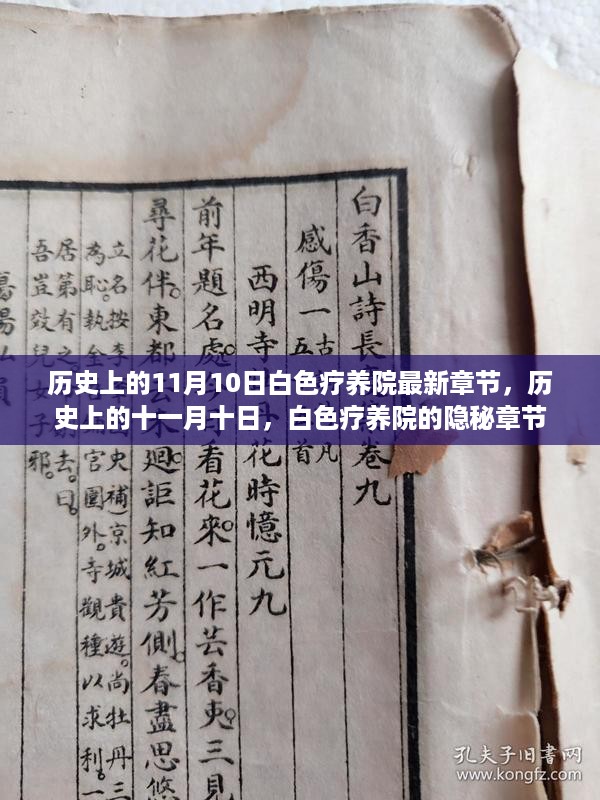 白香山詩長卷九
感傷一
古凡
五
西明寺丹花時憶元九
前年題名處看花來。一作芸香吏。三見
尋花伴。東都迴。詎知紅芳側。春盡思悠
立名按李史補)京城貴遊。尚牡丹三
為恥。執金官圍外。寺觀種以求利。一
居第有之去。曰。
吾豈效兒女子邪。
历史上的11月10日白色疗养院最新章节，历
史上的十一月十日，白色疗养院的隐秘章节
孔夫子旧书网
www.kongfz.com